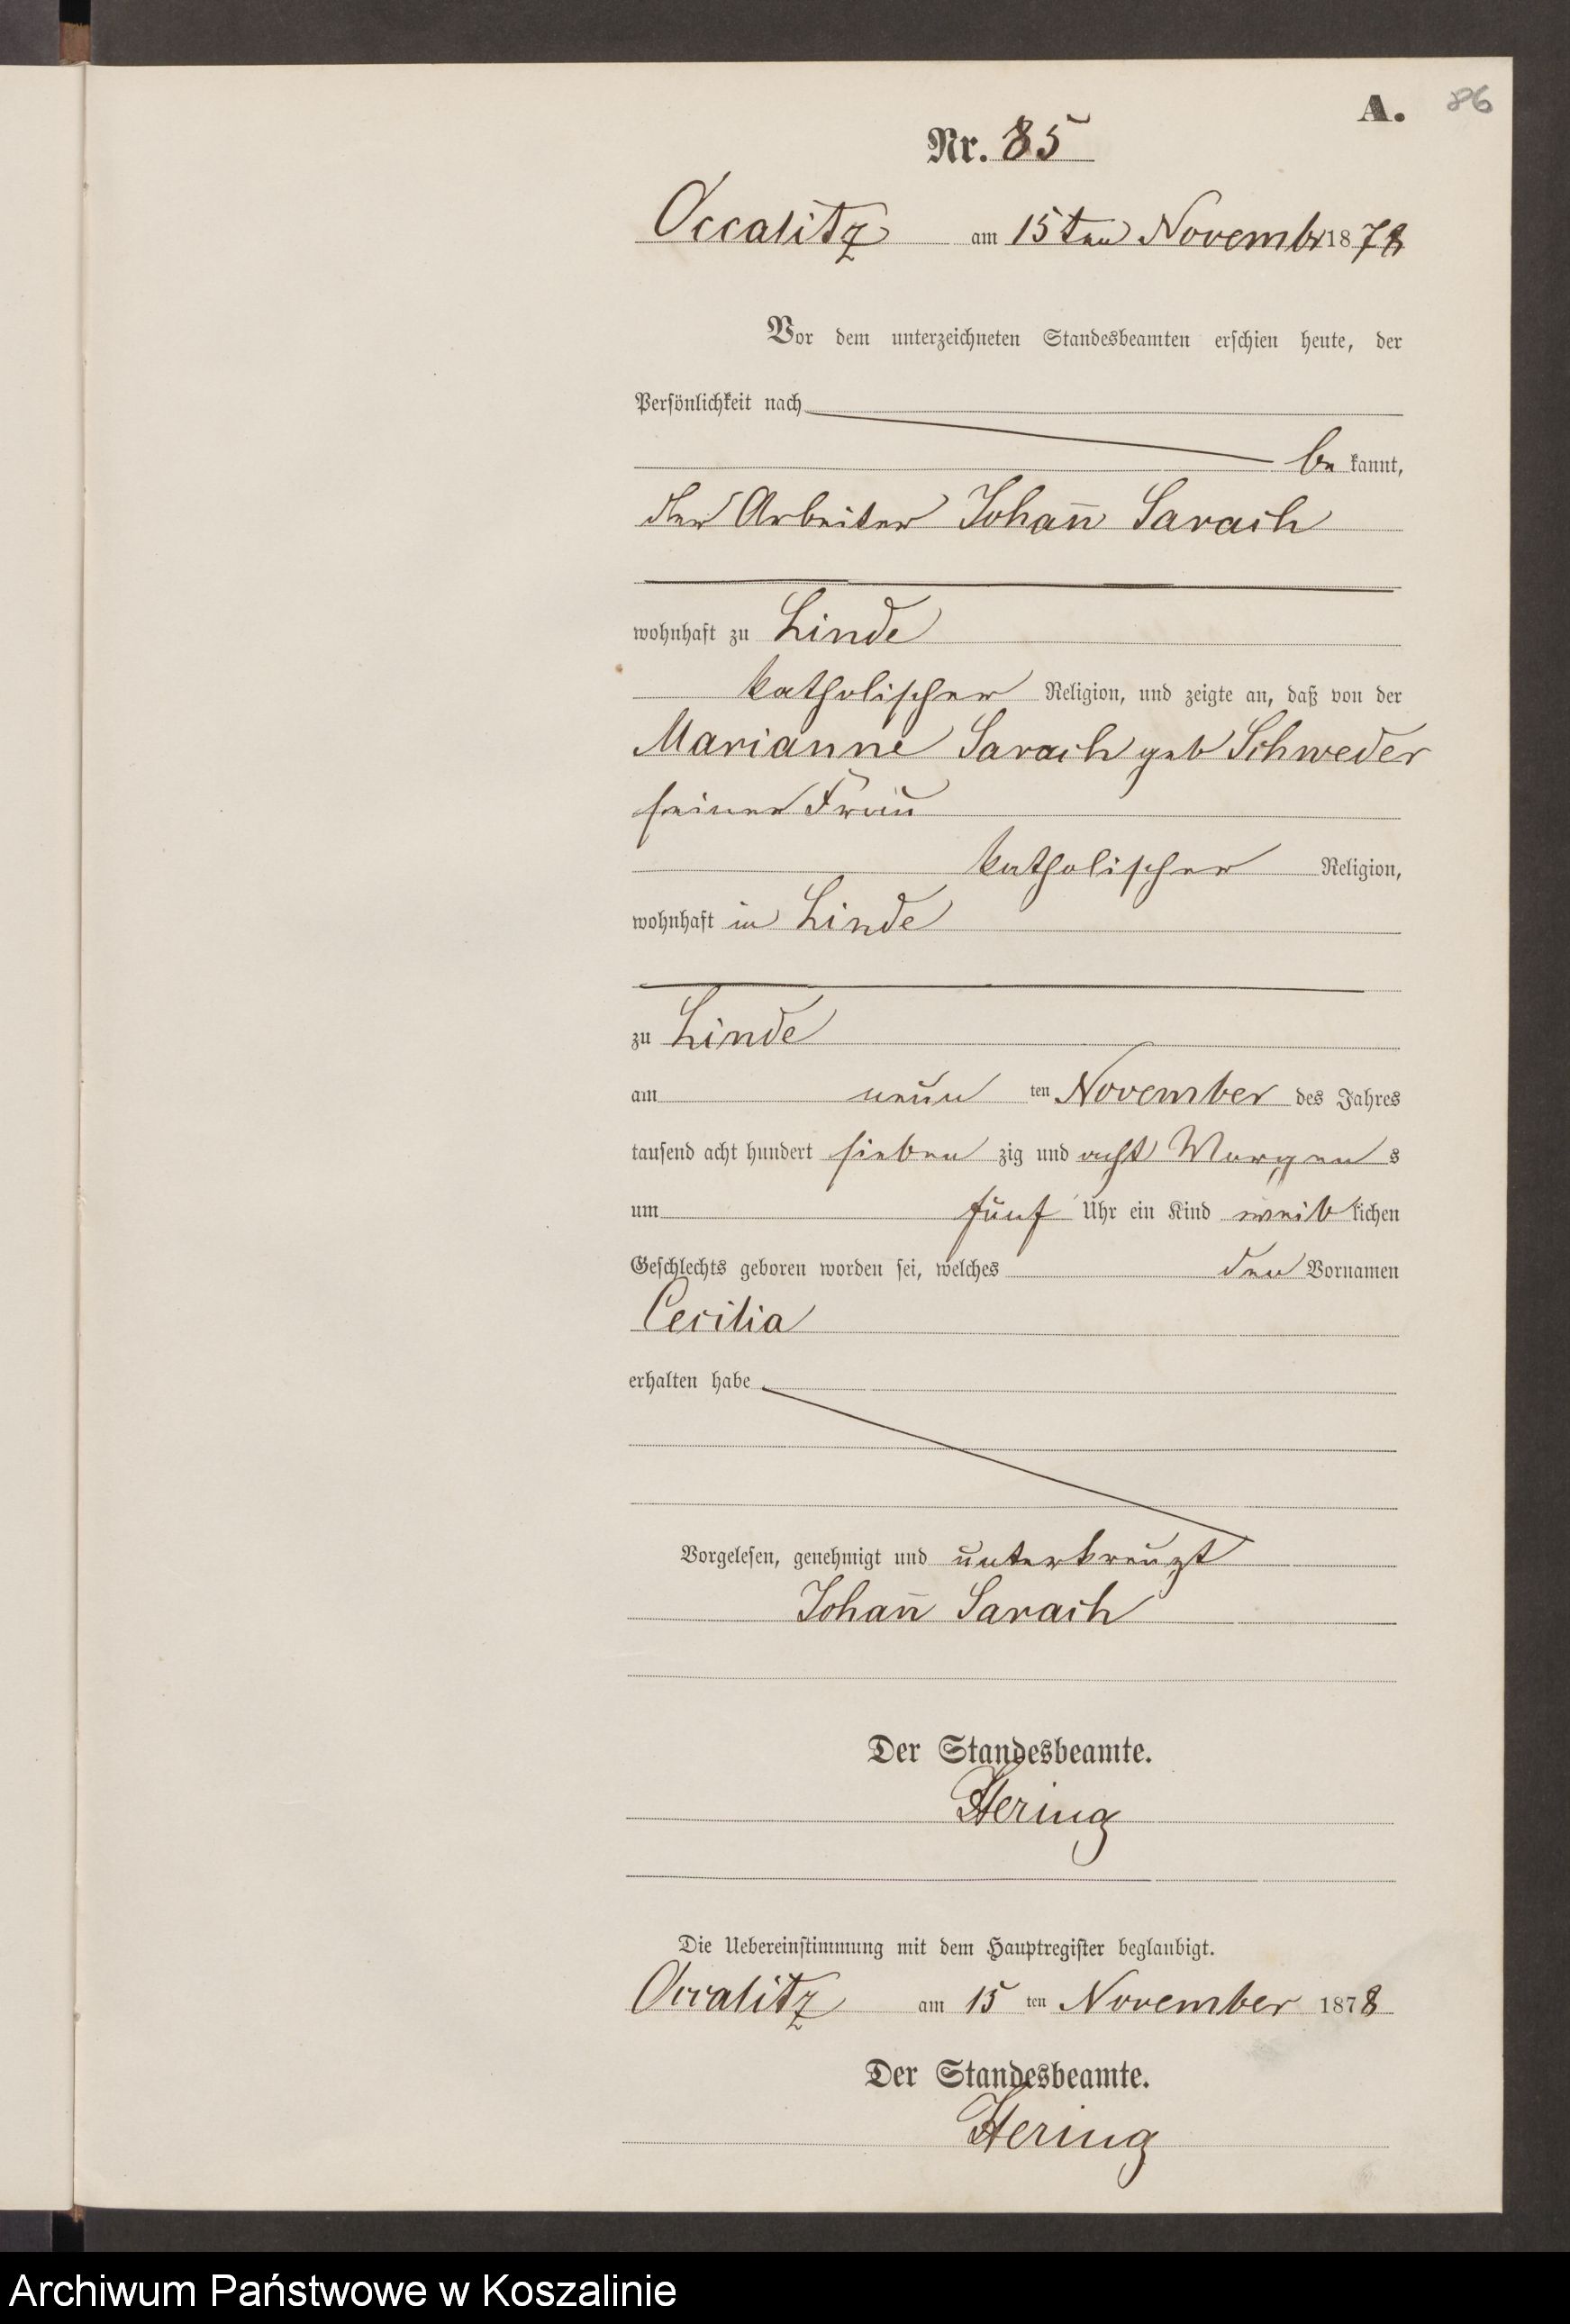 A. 86
Nr. 85
Occalitz am 15ten Novembr 1878
Vor dem unterzeichneten Standesbeamten erschien heute, der
Persönlichkeit nach
be kannt,
der Arbeiter Johan̅ Sarach
wohnhaft zu Linde
katholischer Religion, und zeigte an, daß von der
Marianne Sarach geb Schweder
seiner Frau
katholischer Religion,
wohnhaft in Linde
zu Linde
am neun ten November des Jahres
tausend acht hundert sieben zig und acht Morgen s
um fünf Uhr ein Kind weib lichen
Geschlechts geboren worden sei, welches den Vornamen
Cecilia
erhalten habe
Vorgelesen, genehmigt und unterkreuzt
Johan̅ Sarach
Der Standesbeamte.
Hering
Die Uebereinstimmung mit dem Hauptregister beglaubigt.
Occalitz am 15 ten November 1878
Der Standesbeamte.
Hering
Archiwum Państwowe w Koszalinie